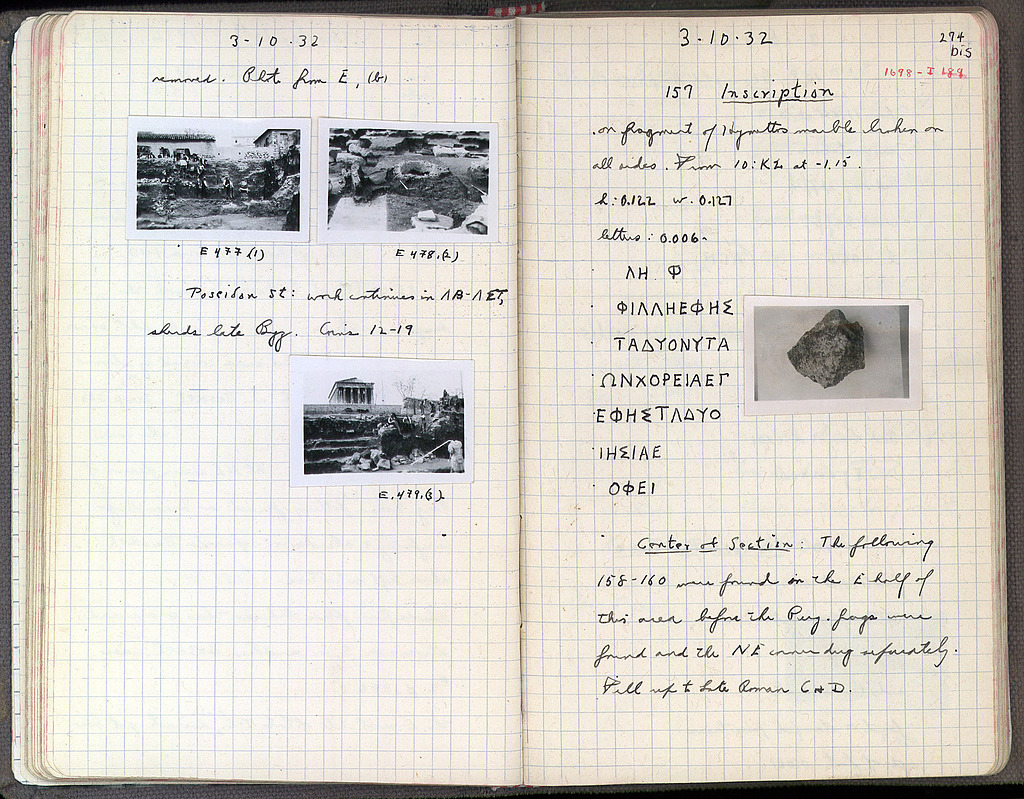 3-10-32
removed. Photo from E, (b)
E 477 (1)
E 478.(2)
Poseidon St: work continues in ΛB-ΛET,
sherds late Byz. Coins 12-19
E.479.(3)
3-10-32
274
bis
1698-I 189
157 Inscription
on fragment of Hymettos marble broken on
all sides. From 10:KZ at -1.15.
h:0.122 w. 0.127
letters: 0.006-
ΛΗ Φ
ΦΙΛΛΗΕΦΗΣ
ΤΑΔΥΟΝΥΤΑ
ΩΝΧΟΡΕΙΑΕΓ
ΕΦΗΣΤΛΔΥΟ
ΙΗΣΙΑΕ
ΟΦΕΙ
Center of Section: The following
158-160 were found in the E half of
this area before the Purg. frags were
found and the NE corner dug separately.
Fill up to Late Roman C & D.